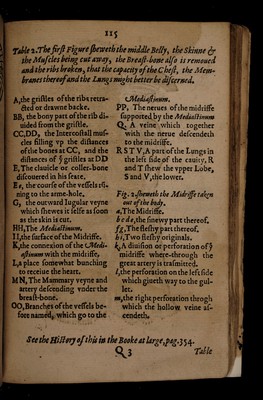 115
Table 2. The first Figure sheweth the middle Belly, the Skinne &
the Muscles being cut away, the Breast-bone also is remoued
and the ribs broken, that the capacity of the Chest, the Mem-
branes thereof and the Lungs might better be discerned.
A, the gristles of the ribs retra-
cted or drawne backe.
BB, the bony part of the rib di-
uided from the gristle.
CC, DD, the Intercostall mus-
cles filling vp the distances
of the bones at CC, and the
distances of ye gristles at DD
E, The clauicle or coller-bone
discouered in his seate.
Ee, the course of the vessels ri-
ning to the arme-hole.
G, the outward Iugular veyne
which shewes it selfe as soon
as the skin is cut.
HH, The Mediastinum.
II, the surface of the Midriffe.
K, the connexion of the Medi-
astinum with the midriffe.
L, a place somewhat bunching
to receiue the heart.
MN, The Mammary veyne and
artery descending vnder the
breast-bone.
OO, Branches of the vessels be-
fore named, which go to the
Mediastinum.
PP, The nerues of the midriffe
supported by the Mediastinum
Q, A veine which together
with the nerue descendeth
to the midriffe.
R S T V, A part of the Lungs in
the left side of the cauity, R
and T shew the vpper Lobe,
S and V, the lower.
Fig. 2. sheweth the Midriffe taken
out of the body.
a, The Midriffe.
b c d e, the sinewy part thereof.
f g, The fleshy part thereof.
h i, Two fleshy originals.
k, A diuision or perforation of ye
midriffe where-through the
great artery is trasmitted.
l, the perforation on the left side
which giueth way to the gul-
let.
m, the right perforation through
which the hollow veine as-
cendeth.
See the History of this in the Booke at large, pag. 354.
Q 3
Table